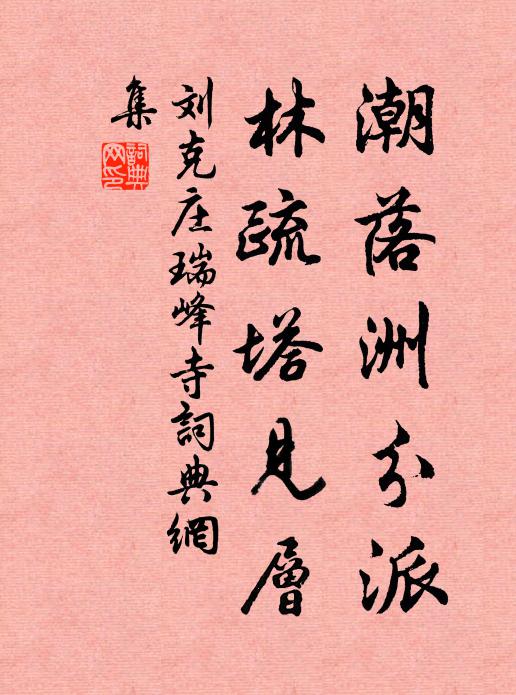 潮落洲分派
林疏塔见層
刘克庄瑞峰寺詞典網
集
詞典網印